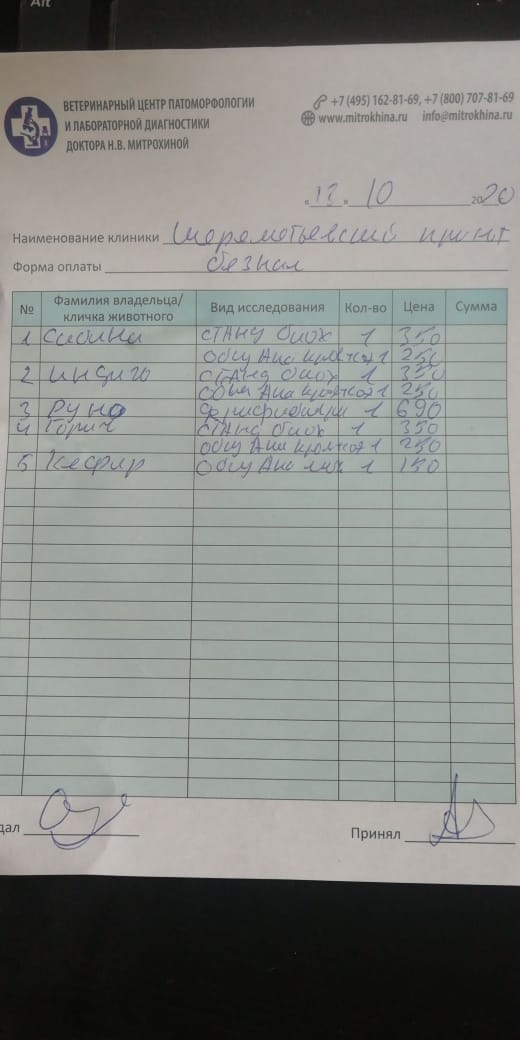 Alt
ВЕТЕРИНАРНЫЙ ЦЕНТР ПАТОМОРФОЛОГИИ
И ЛАБОРАТОРНОЙ ДИАГНОСТИКИ
ДОКТОРА Н.В. МИТРОХИНОЙ
+7 (495) 162-81-69, +7 (800) 707-81-69
www.mitrokhina.ru info@mitrokhina.ru
„13" 10 2020
Наименование клиники Шереметьевский приют
Форма оплаты безнал
№ Фамилия владельца/ кличка животного Вид исследования Кол-во Цена Сумма
1 Сабина СТАНД биох 1 350
общ Ана кровкоя 1 250
2 Индиго СТАНД биох 1 350
Общ Ана 1 250
3 Руна 1 690
4 СТАНД биох 1 350
общ Ана 1 250
5 Кефир Общ Ана 1 150
дал
Принял